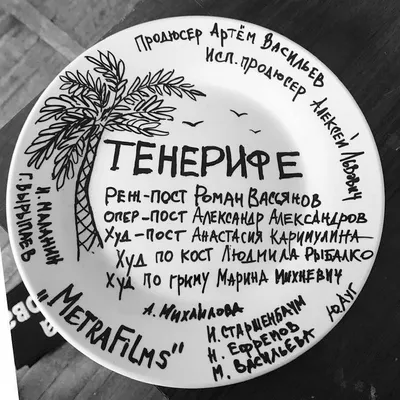 Продюсер Артём Васильев
Исп. продюсер Алексей Львович
ТЕНЕРИФЕ
Реж-пост Роман Васьянов
Опер-пост Александр Александров
Худ-пост Анастасия Каримулина
Худ по кост Людмила Рыбалко
Худ по гриму Марина
А. Михайлова
И. Старшенбаум
Н. Ефремов
М. Васильева
Ю. Ауг
"MetraFilms"
Г. Вырыпаев
И. Маланин